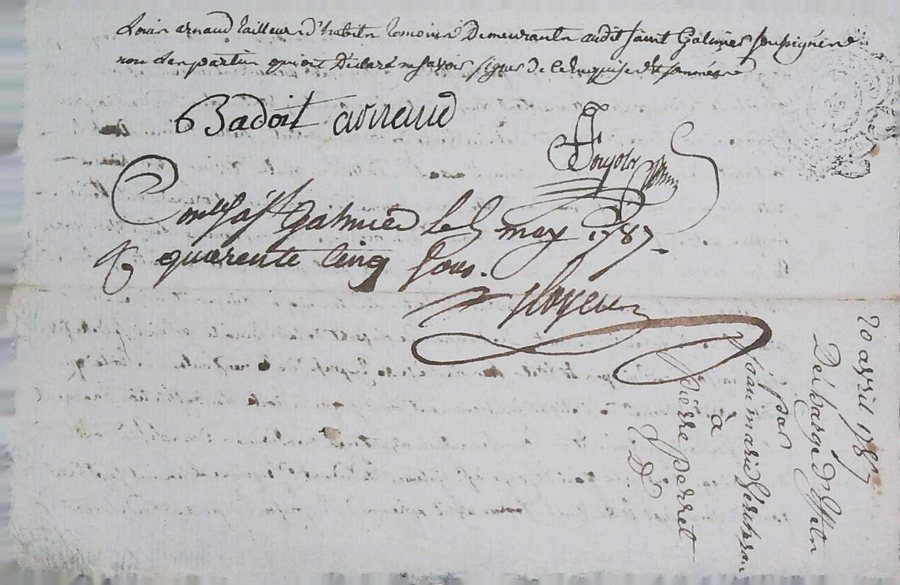 Louis arnaud tailleur d'habits temoins demeurants audit Saint Galmier soussignés
non les parties qui ont déclaré ne savoir signer de ce enquise et sommée
Badoit arnaud
Con^lé à S^t Galmier le 5 may 1787.
quarente cinq sous.
20 avril 1787
Décharge d'effets
par
Jean marie
à
pierre perret